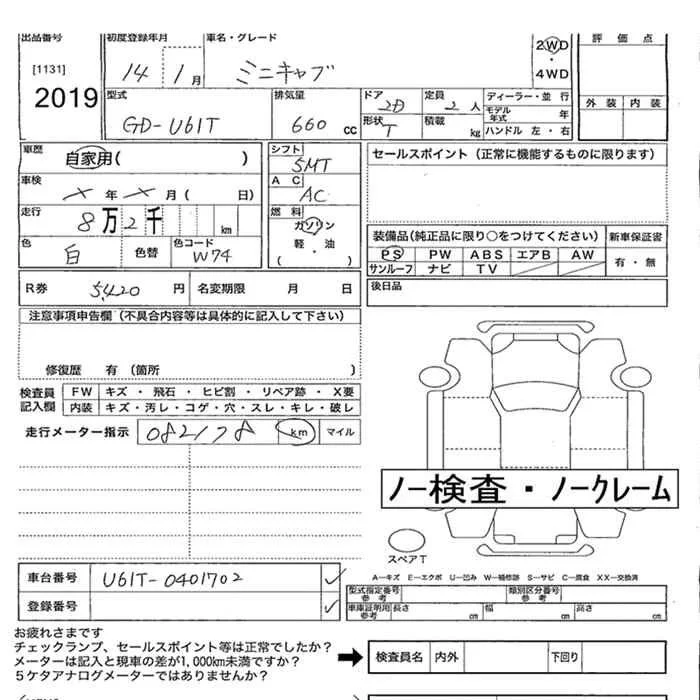 出品番号 初度登録年月 車名・グレード 2WD 評価点
[1131] 14 1月 ミニキャブ ・4WD
2019 型式 排気量 ドア 定員 ディーラー・並行 外装 内装
GD-U61T 660 cc 2D 2人 モデル年式 年
形状 T 積載 kg ハンドル 左・右
車歴 自家用( ) シフト 5MT セールスポイント(正常に機能するものに限ります)
車検 メ 年 メ 月( 日) AC AC
走行 8万2千 km 燃料 ガソリン
軽・油
( )
色 白 色替 色コード W74
装備品(純正品に限り○をつけてください) 新車保証書
PS PW ABS エアB AW 有・無
サンルーフ ナビ TV
R券 5,420 円 名変期限 月 日 後日品
注意事項申告欄(不具合内容等は具体的に記入して下さい)
修復歴 有(箇所 )
検査員記入欄 FW キズ・飛石・ヒビ割・リペア跡・X要
内装 キズ・汚レ・コゲ・穴・スレ・キレ・破レ
走行メーター指示 082178 km マイル
ノー検査・ノークレーム
スペアT
車台番号 U61T-0401702
登録番号
A―キズ E―エクボ U―凹み W―補修跡 S―サビ C―腐食 XX―交換済
型式指定番号 参考 類別区分番号 参考
車庫証明用 参考 長さ cm 幅 cm 高さ cm
お疲れさまです
チェックランプ、セールスポイント等は正常でしたか?
メーターは記入と現車の差が1,000km未満ですか?
5ケタアナログメーターではありませんか?
検査員名 内外 下回り